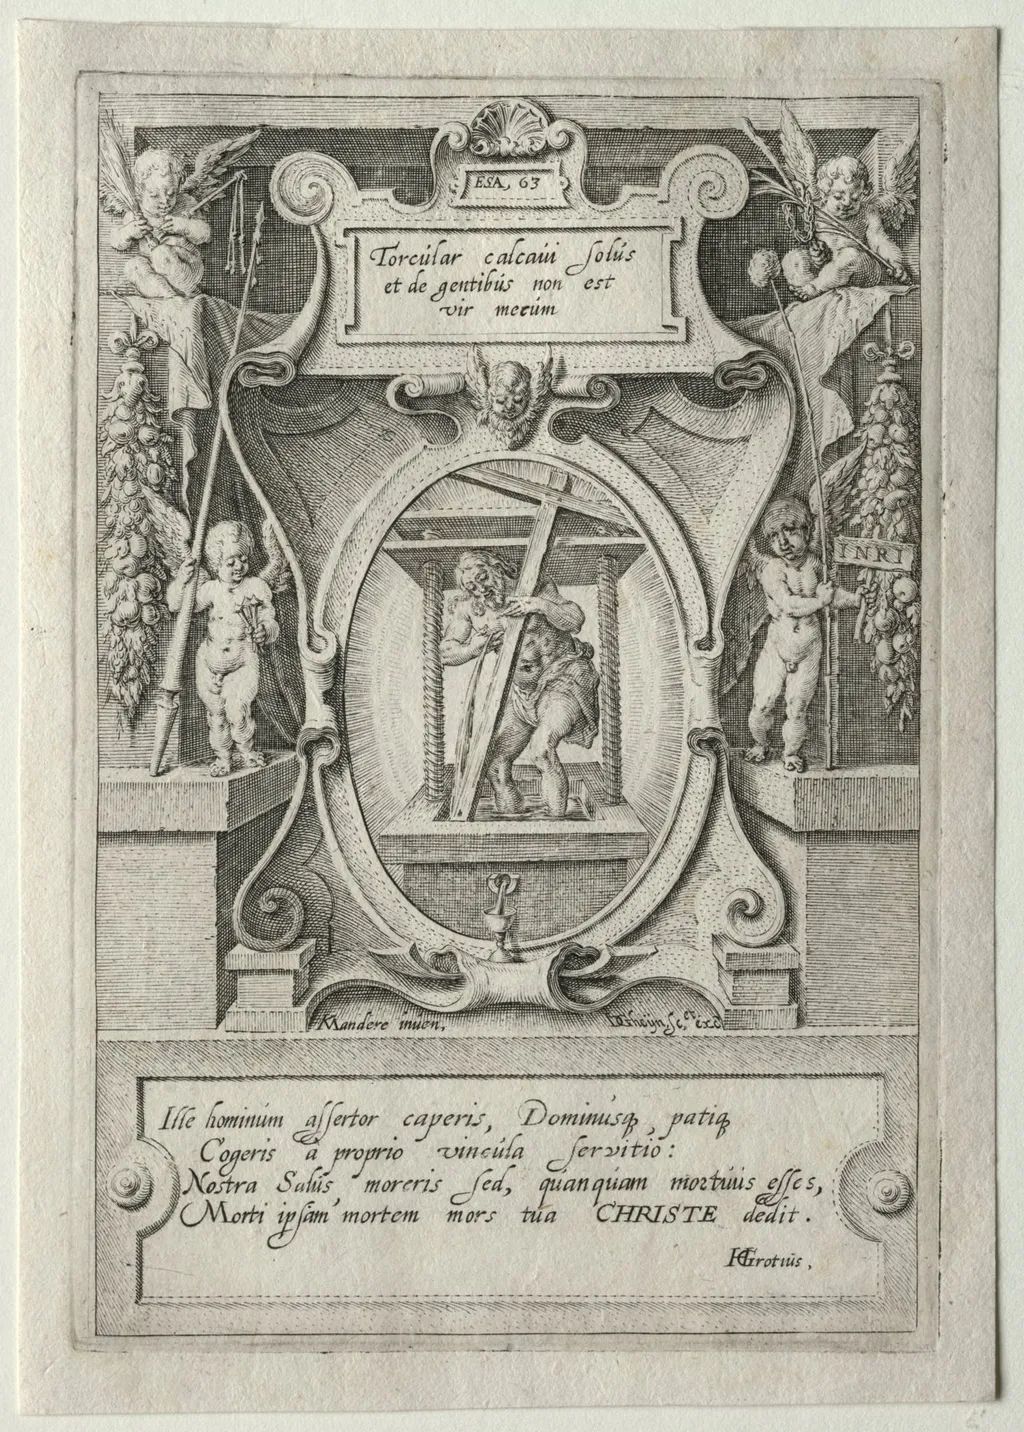 ESA, 63
Torcular calcaui solus
et de gentibus non est
vir mecum
INRI
KMandere inuen,
DGheijn. sc. et exc
Ille hominum assertor caperis, Dominusq, patiq
Cogeris à proprio vincula servitio:
Nostra Salus moreris sed, quanquam mortuus esses,
Morti ipsam mortem mors tua CHRISTE dedit.
HGrotius,